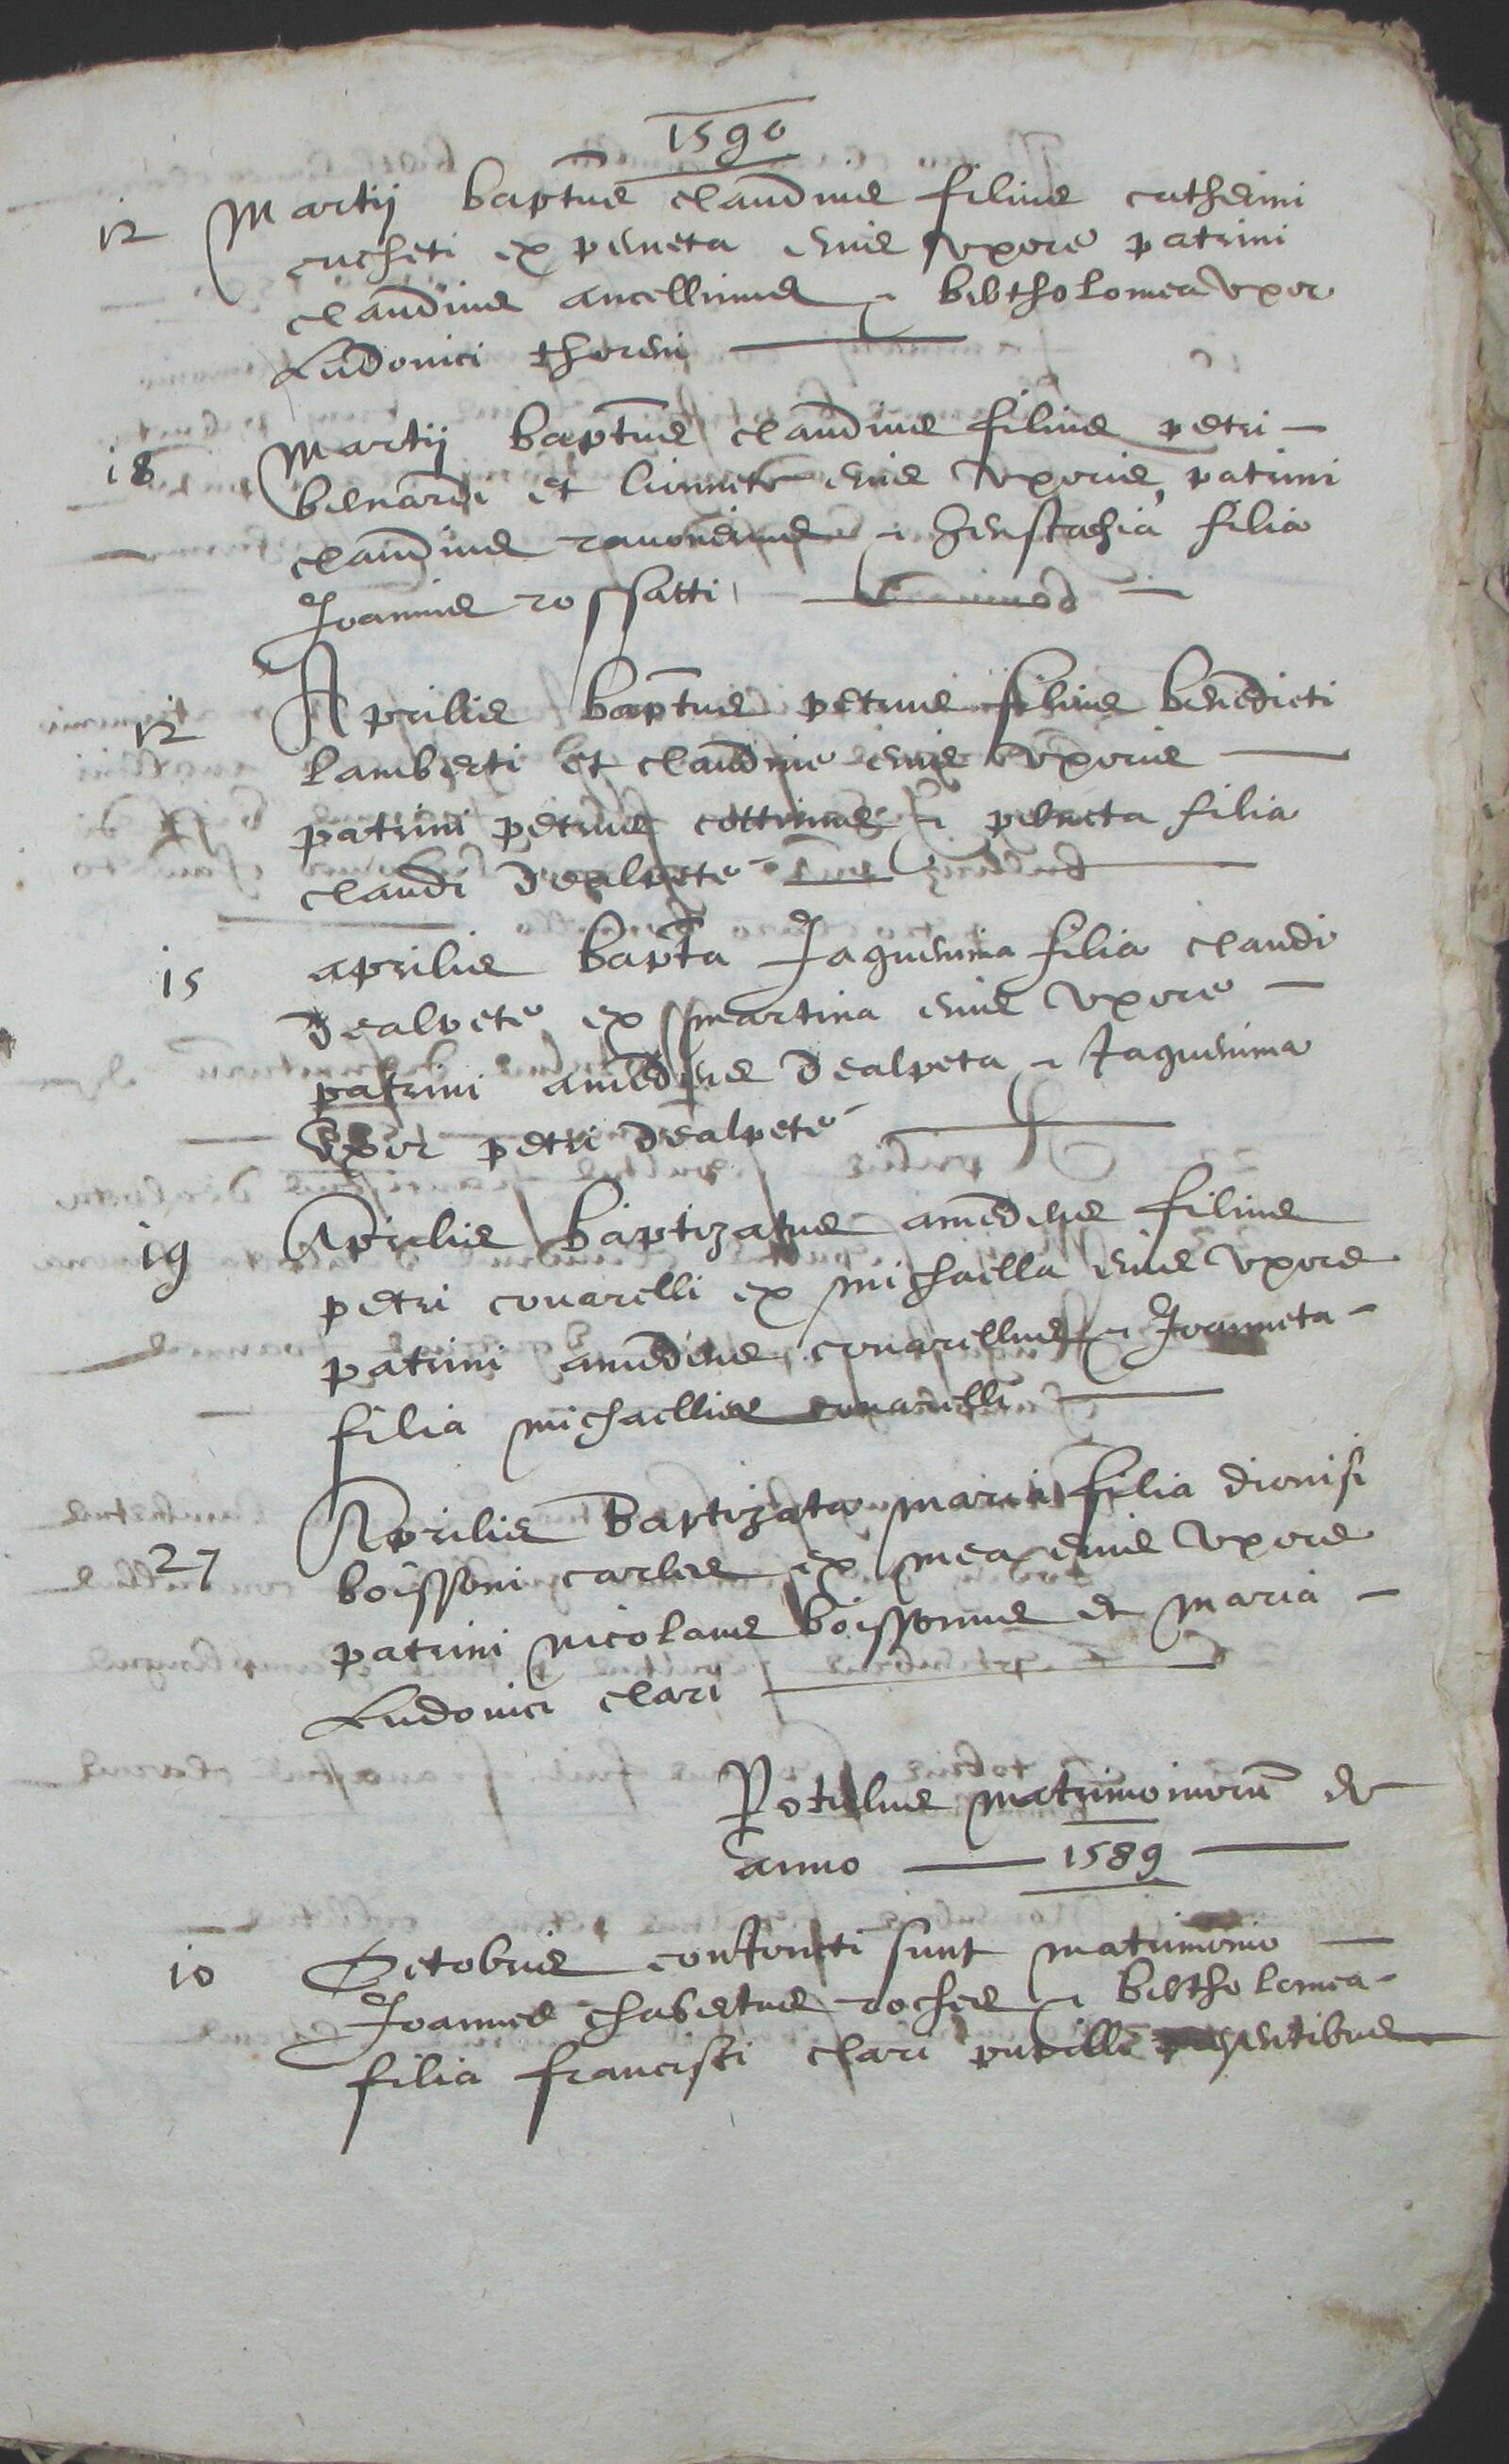 1590
12 Martij bapt̃us claudius filius catherini
cucheti ex perneta eius uxore patrini
claudius ancellinus et bertholomea uxor
Ludovici thoreni
18 Martij bapt̃us claudius filius petri
bernardi et eius uxoris, patrini
claudius et filia
Joannis rossatti
12 Aprilis bapt̃us petrus filius benedicti
lamberti et claudine eius uxoris
patrini petrus cottinus et perneta filia
claudi dealpete
15 aprilis bapta Jaquemina filia claudi
dealpete ex martina eius uxore
patrini amedeus dealpeta et Jaquemina
uxor petri dealpete
19 Aprilis baptizatus amedeus filius
petri covarelli ex michaella eius uxore
patrini amedeus covarellus et Joanneta
filia michaellis covarelli
27 Aprilis baptizata maria filia dionisi
boissoni carles ex mea eius uxore
patrini nicolaus boissonus et maria
Ludovici clari
Rotulus matrimoniorũ de
anno 1589
10 Octobris coniuncti sunt matrimonio
Joannes chabertus roches et bertholomea
filia francisci clari presentibus